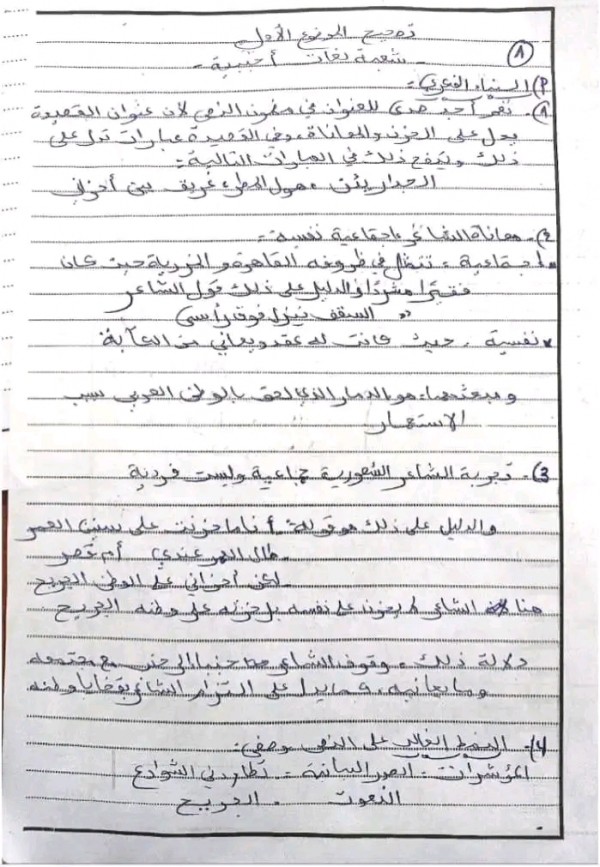 تصحيح الموضوع الأول
①
- شعبة لغات أجنبية -
P) البناء الفكري:
1). نعم أجد صدى للعنوان في مضمون النص لأن عنوان القصيدة
يدل على الحزن والمعاناة، وفي القصيدة عبارات تدل على
ذلك ويتضح ذلك في العبارات التالية:
الجدار يئن، هول المطر، غريق بين أحزاني
2). معاناة الشاعر، اجتماعية نفسية:
اجتماعية: تتمثل في ظروفه القاهرة و المزرية حيث كان
فقيرًا مشردًا والدليل على ذلك قول الشاعر
" السقف ينزل فوق رأسي
نفسية. حيث كانت له عقد ويعاني من الكآبة
ومبعثهما، هو الدمار الذي لحق بالوطن العربي بسبب
الاستعمار
3). تجربة الشاعر الشعورية جماعية وليست فردية
والدليل على ذلك هو قوله: أنا ما حزنت على سنين العمر
طال العمر عندي أم قصر
لكن أحزاني على الوطن الجريح
هنا الشاعر لا يحزن على نفسه بل حزنه على وطنه الجريح
دلالة ذلك، وقوف الشاعر جنبا إلى جنب مع مجتمعه
وما يعانيه، مما يدل على التزام الشاعر بقضايا وطنه
4). النمط الغالب على النص وصفي:
المؤشرات: الصور البيانية: تطاردني الشوارع
النعوت: الجريح